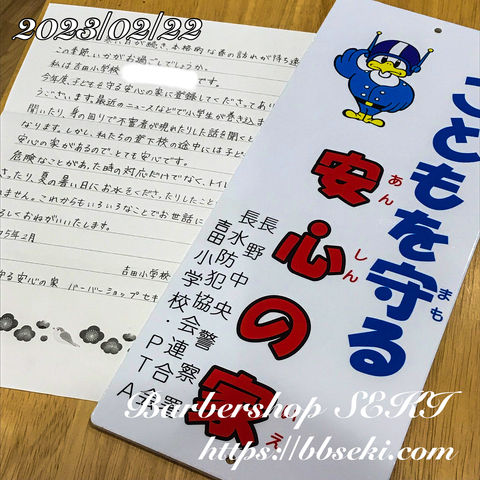 2023/02/22
い日が続き、本格的な春の訪れが待ち遠
この季節、いかがお過ごしでしょうか。
私は吉田小学校
です。
今年度、子どもを守る安心の家に登録してくださってあり
うございます。最近のニュースなどで小学生が巻き込ま
聞いたり、身の回りで不審者が現れたりした話を聞くと
なります。しかし、私たちの登下校の途中には子ど
安心の家があるので、とても安心です。
危険なことがあった時の対応だけでなく、トイ
たり、夏の暑い日にお水をくださったりしたこ
れません。これからもいろいろなことでお世話に
ろしくおねがいいたします。
5年2月
吉田小学校
守る安心の家 バーバーショップセキ
こどもを守る
まも
安心の家
あん しん いえ
長野中央警察署
長水防犯協会連合会
吉田小学校・PTA
Barbershop SEKI
https://bbseki.com